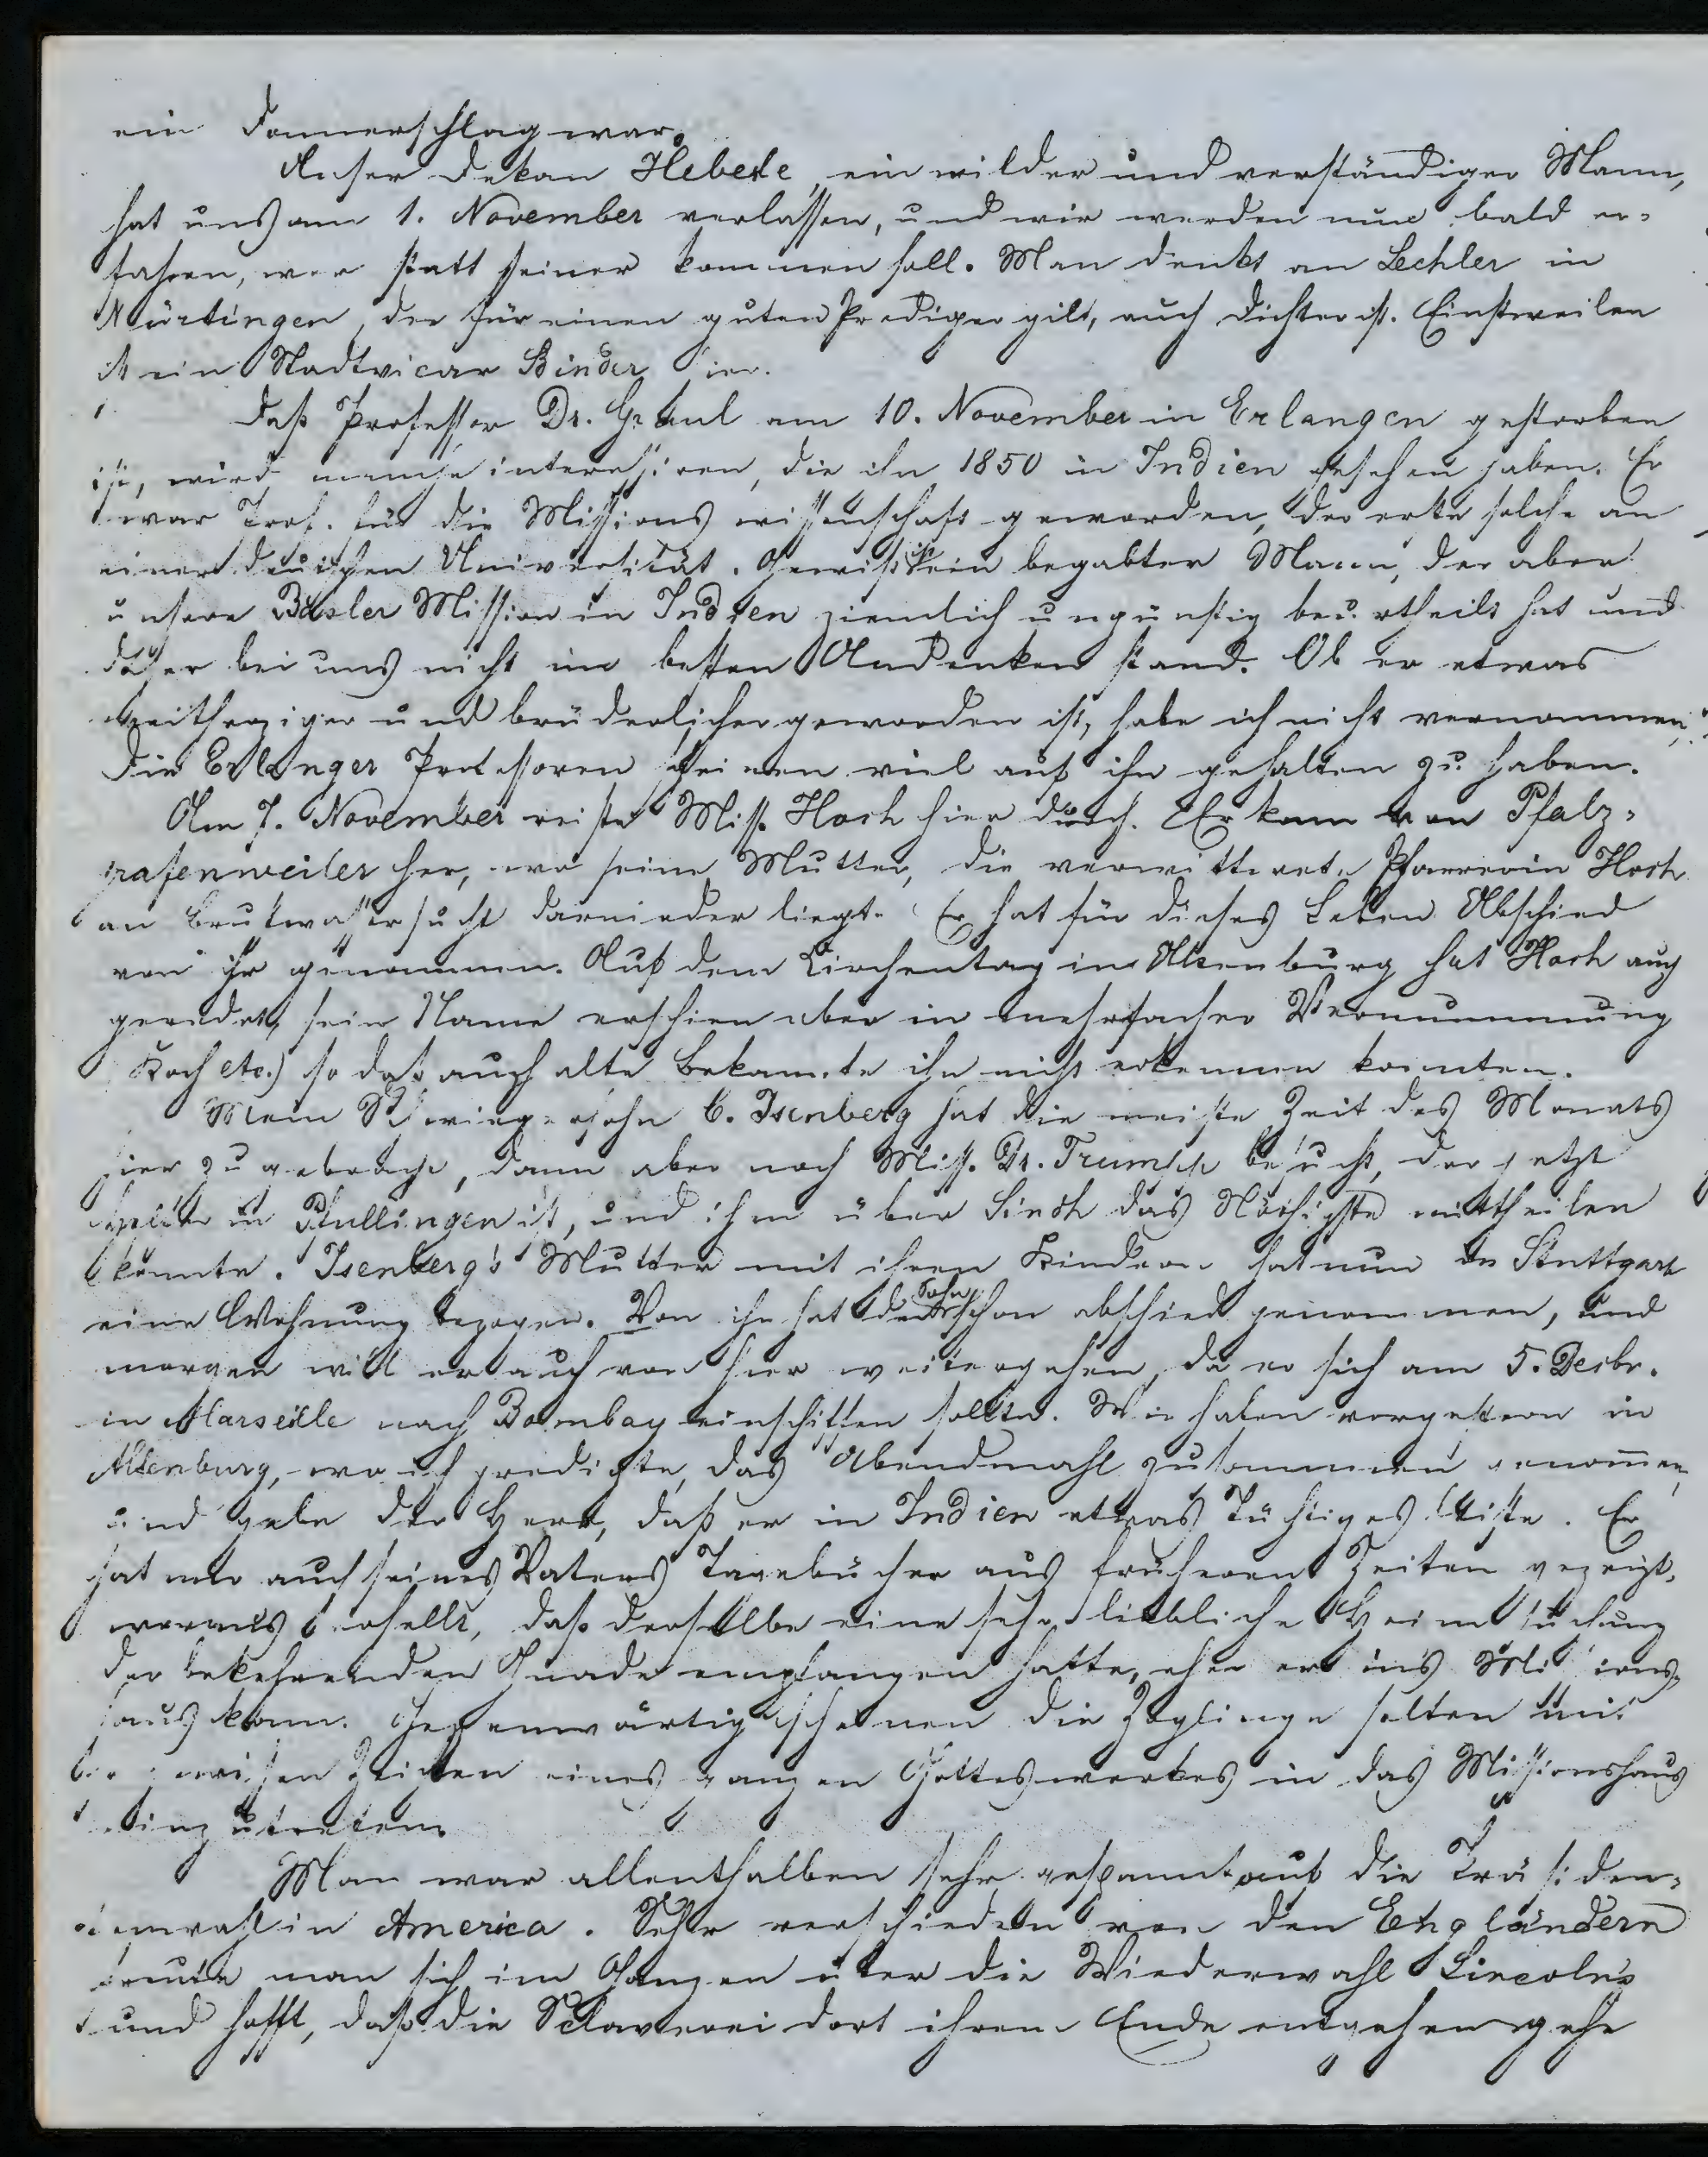 ein Donnerschlag war.
Unser Dekan Heberle, ein milder und verständiger Mann,
hat uns am 1. November verlassen, und wir werden nun bald er-
fahren, wer statt seiner kommen soll. Man denkt an Lechler in
Nürtingen, der für einen guten Prediger gilt, auch Dichter ist. Einstweilen
ist ein Stadtvicar Binder hier.
Daß Professor Dr. Graul am 10. November in Erlangen gestorben
ist, wird manche interessiren, die ihn 1850 in Indien gesehen haben. Er
war Prof. für die Missionswissenschaft geworden, der erste solche an
einer deutschen Universität. Gewiß ein begabter Mann, der aber
unsere Basler Mission in Indien ziemlich ungünstig beurtheilt hat und
daher bei uns nicht im besten Andenken stand. Ob er etwas
weitherziger und brüderlicher geworden ist, habe ich nicht vernommen;
die Erlanger Professoren scheinen viel auf ihn gehalten zu haben.
Am 7. November reiste Miss. Hoch hier durch. Er kam von Pfalz-
grafenweiler her, wo seine Mutter, die verwittwete Pfarrerin Hoch
an Brustwassersucht darnieder liegt. Er hat für dieses Leben Abschied
von ihr genommen. Auf dem Kirchentag in Altenburg hat Hoch auch
geredet, sein Name erschien aber in mehrfacher Vermummung
Koch etc.) so daß auch alte Bekannte ihn nicht erkennen konnten.
Mein Schwiegersohn C. Isenberg hat die meiste Zeit des Monats
hier zugebracht, dann aber noch Miss. Dr. Trumpp besucht, der jetzt
Helfer in Pfullingen ist, und ihm über Sindh das Nöthigste mittheilen
konnte. Isenberg's Mutter mit ihren Kindern hat nun in Stuttgart
eine Wohnung bezogen. Von ihr hat der Sohn schon abschied genommen, und
morgen will er auch von hier weitergehen, da er sich am 5. Decbr.
in Marseille nach Bombay einschiffen sollte. Wir haben vorgestern in
Altenburg, wo ich predigte, das Abendmahl zusammen genommen,
und gebe der Herr, daß er in Indien etwas Tüchtiges leiste. Er
hat mir auch seines Vaters Tagebücher aus früheren Zeiten gezeigt,
woraus erhellt, daß derselbe eine sehr liebliche Heimsuchung
der bekehrenden Gnade empfangen hatte, ehe er in's Missions-
haus kam. Gegenwärtig scheinen die Zöglinge selten mit
gewissen Zeichen eines ganzen Gotteswerkes in das Missionshaus
einzutreten.
Man war allenthalben sehr gespannt auf die Präsiden-
tenwahl in America. Sehr verschieden von den Engländern
freute man sich im Ganzen über die Wiederwahl Lincoln's
und hofft, daß die Sclaverei dort ihrem Ende entgehen gehe